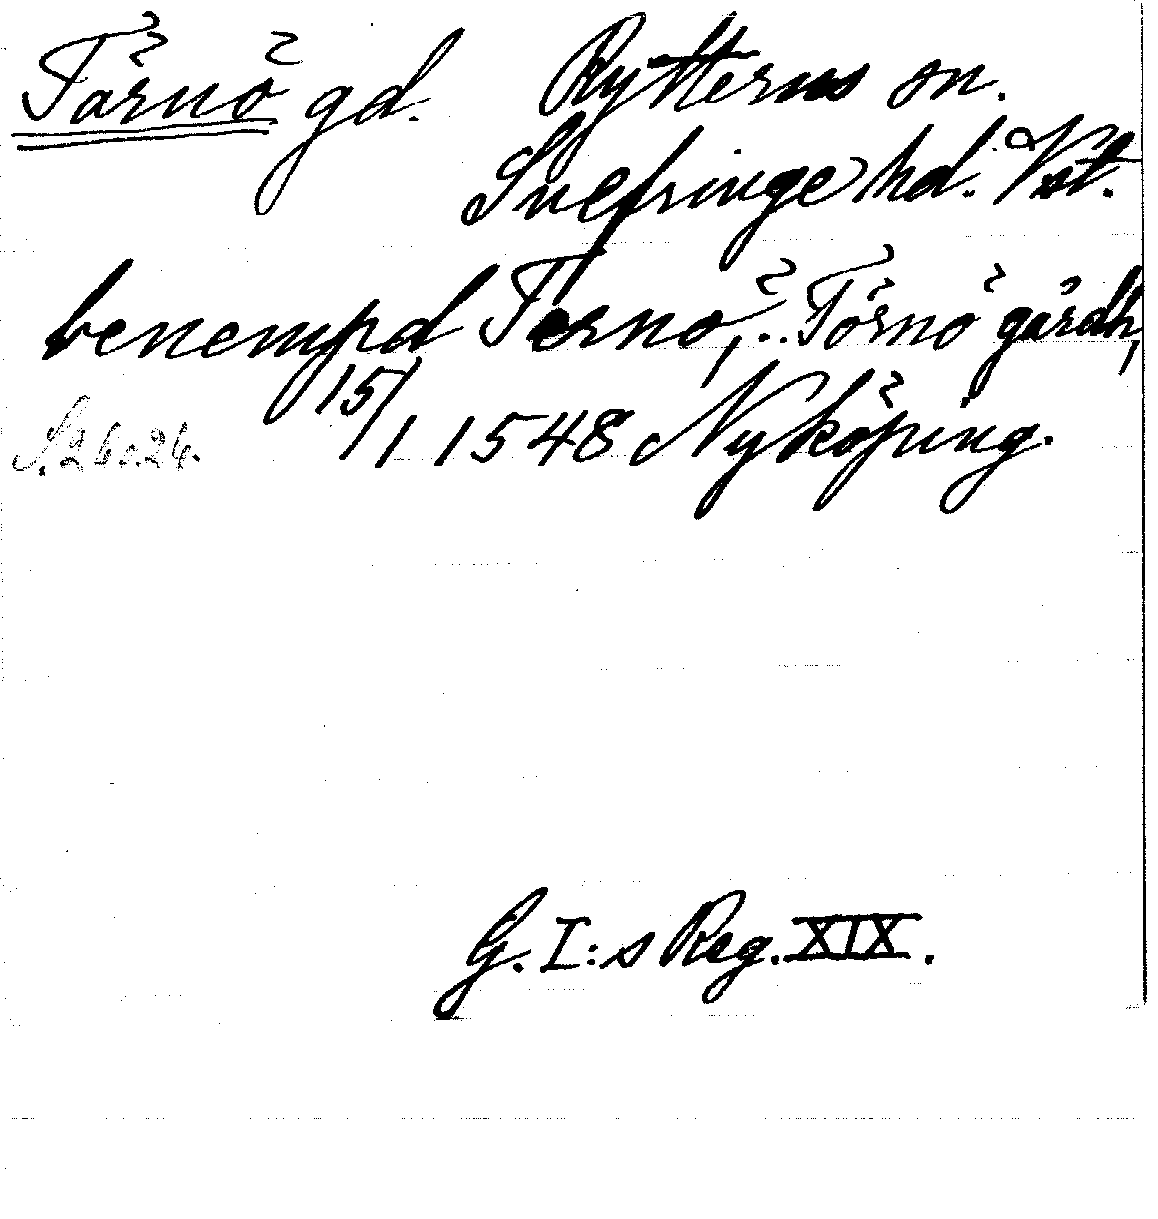 Tärnö gd. Rytterns sn.
Snefringe hd. Vst.
benempd Ternö, .. Törnö gårdh,
15/1 1548 Nyköping.
S. 26 o. 24.
G. I:s Reg. XIX.